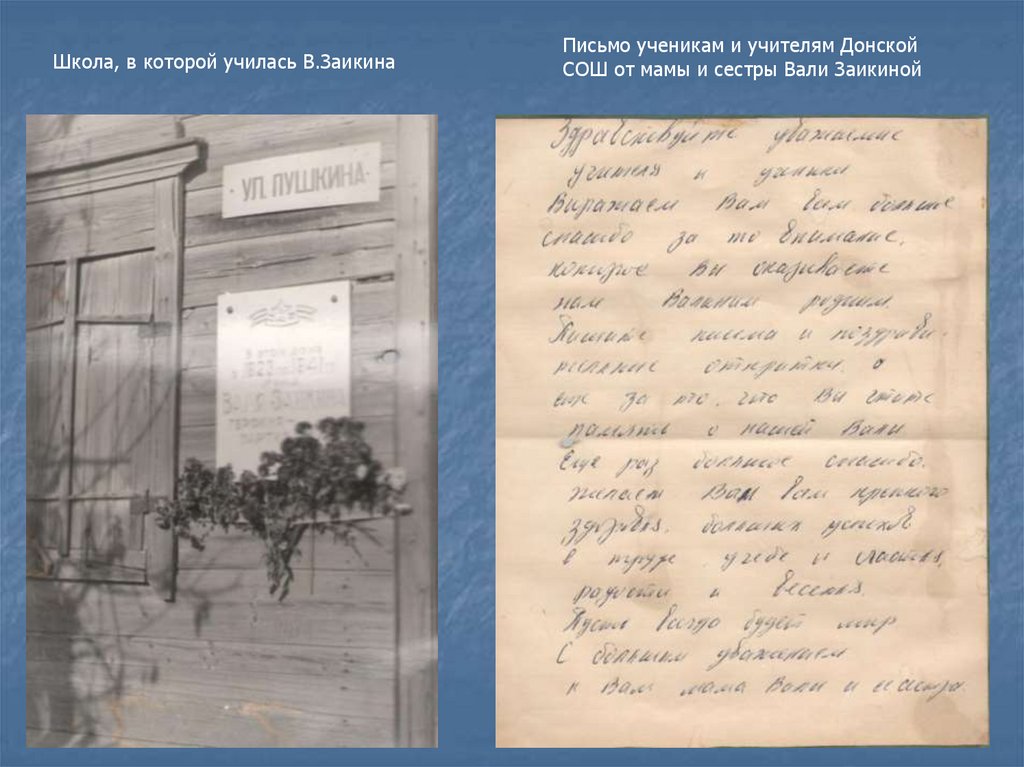 Школа, в которой училась В.Заикина
Письмо ученикам и учителям Донской
СОШ от мамы и сестры Вали Заикиной
УЛ. ПУШКИНА
В этом доме
Валя Заикина
Здравствуйте уважаемые
учителя и ученики
Выражаем Вам всем большое
спасибо за то внимание,
которое Вы оказываете
нам Валиным родным.
Пишите письма и поздрави-
тельные открытки, а
еще за то, что Вы чтите
память о нашей Вали
Еще раз большое спасибо.
Желаем Вам всем крепкого
здоровья, больших успехов
в труде учебе и счастья,
радости и веселья.
Пусть всегда будет мир
С большим уважением
к Вам мама Вали и сестра.